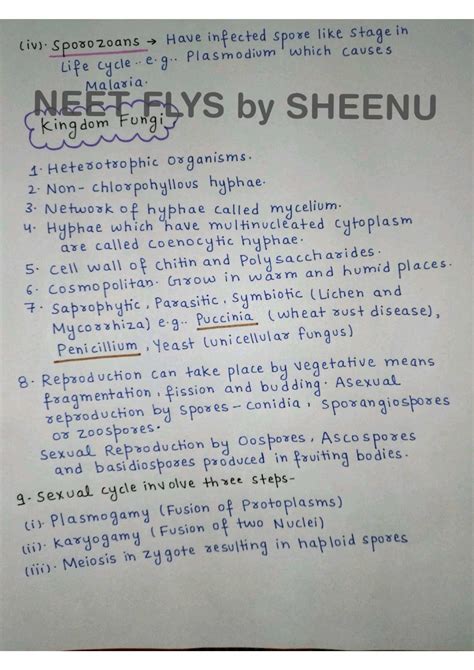 (iv). Sporozoans → Have infected spore like stage in
Life cycle.. e.g.. Plasmodium which causes
Malaria.
NEET FLYS by SHEENU
Kingdom Fungi
1. Heterotrophic organisms.
2. Non- chlorpohyllous hyphae.
3. Network of hyphae called mycelium.
4. Hyphae which have multinucleated cytoplasm
are called coenocytic hyphae.
5. cell wall of chitin and Polysaccharides.
6. Cosmopolitan. Grow in warm and humid places.
7. Saprophytic, Parasitic, Symbiotic (Lichen and
Mycorrhiza) e.g.. Puccinia (wheat rust disease),
Penicillium, Yeast (unicellular fungus)
8. Reproduction can take place by vegetative means
fragmentation, fission and budding. Asexual
reproduction by spores - conidia, sporangiospores
or zoospores.
Sexual Reproduction by Oospores, Ascospores
and basidiospores produced in fruiting bodies.
9. sexual cycle involve three steps-
(i). Plasmogamy (Fusion of Protoplasms)
(ii). Karyogamy (Fusion of two Nuclei)
(iii). Meiosis in zygote resulting in haploid spores